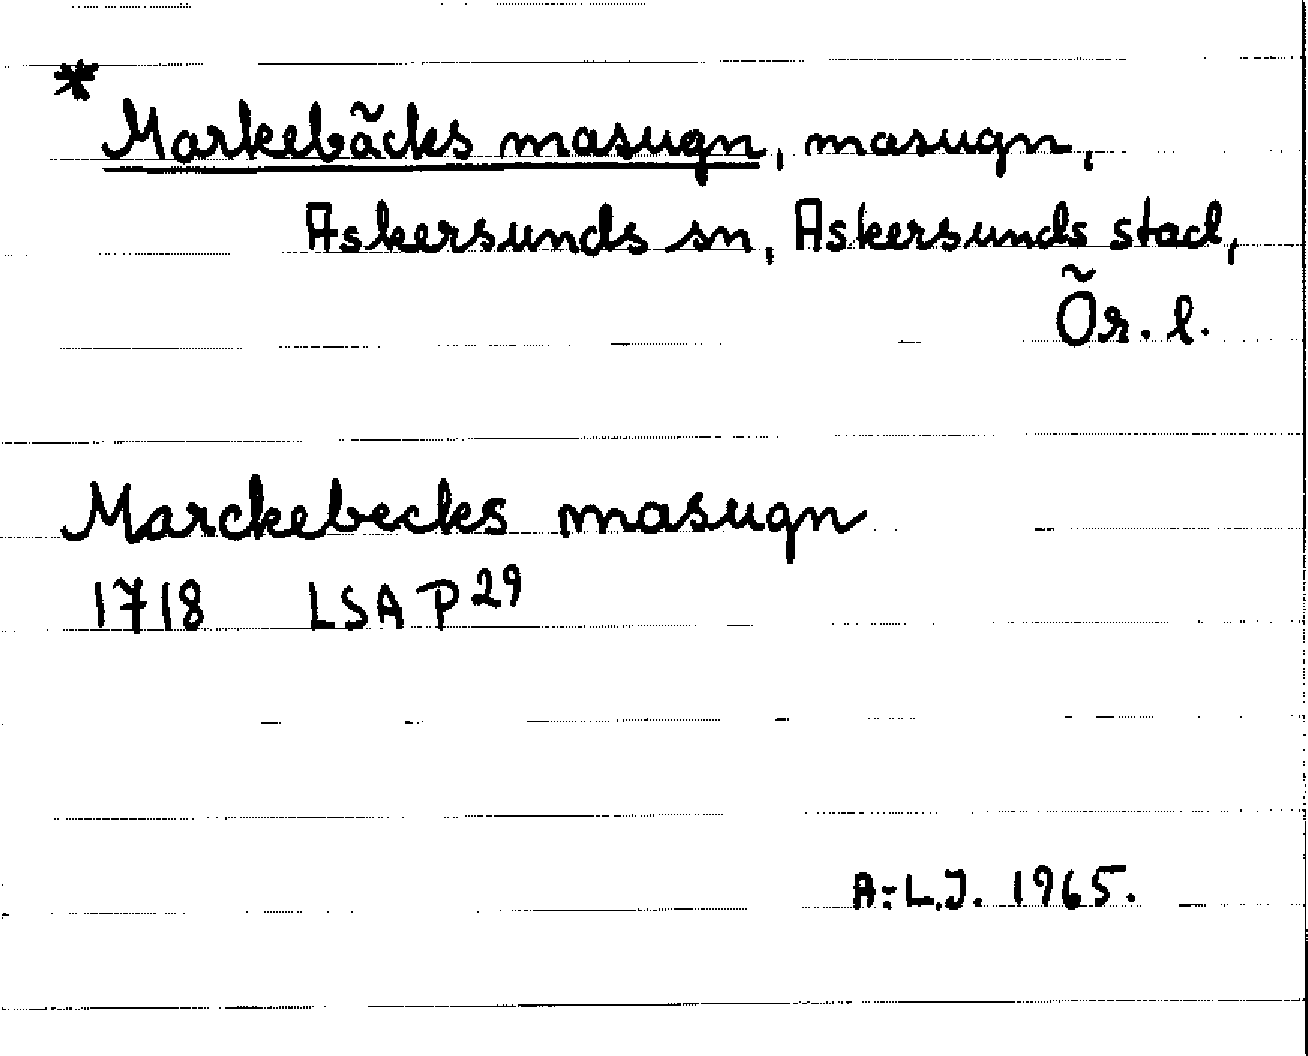 * Markebäcks masugn, masugn,
Askersunds sn, Askersunds stad,
Ör. l.
Marckebecks masugn
1718 LSA P 29
A-L.J. 1965.